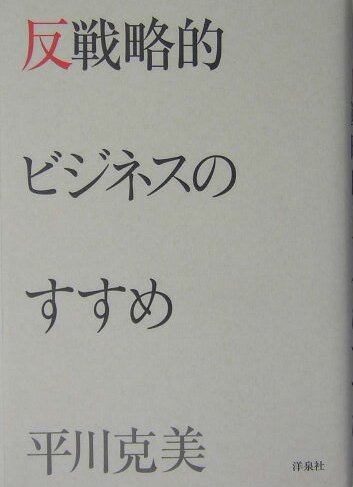 反戦略的
ビジネスの
すすめ
平川克美
洋泉社